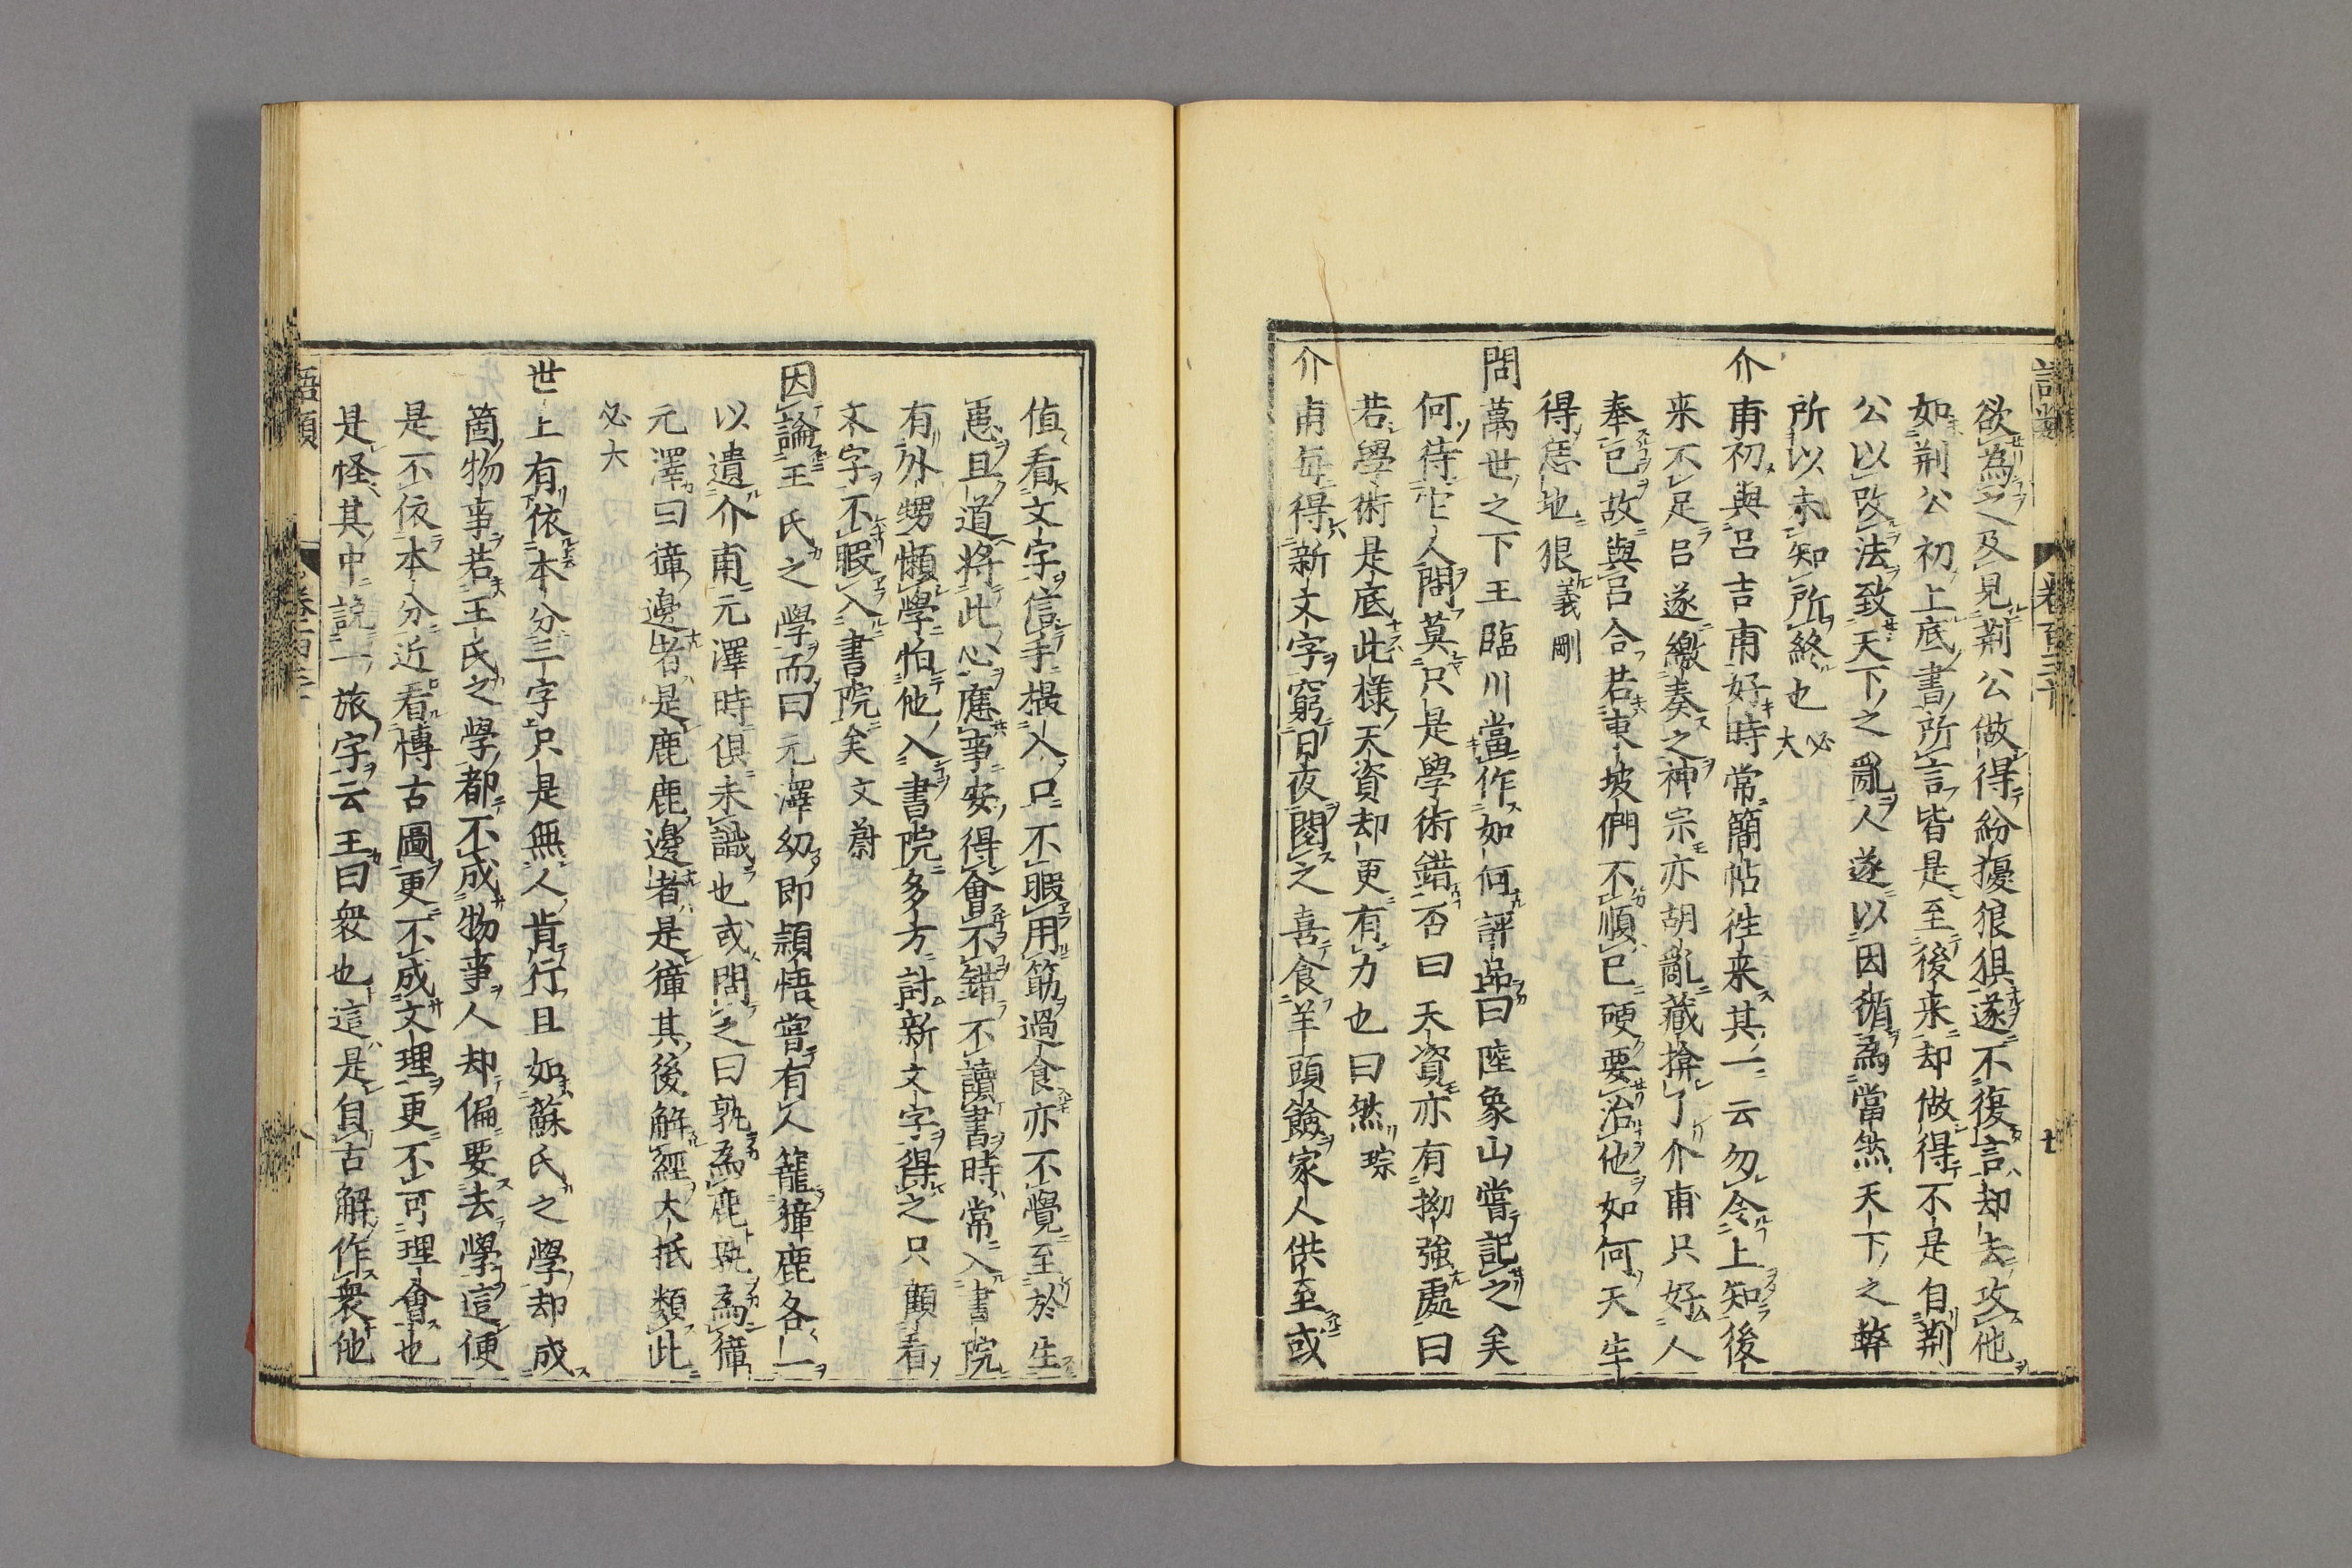 欲為之及見荆公做得紛擾狼狽遂不復言却去攻他
如荆公初上底書所言皆是至後来却做得不是自荆
公以改法致天下之亂人遂以因循為當然天下之弊
所以未知所終也必大
介甫初與吕吉甫好時常簡帖往来其一云勿令上知後
来不足吕遂繳奏之神宗亦胡亂藏揜了介甫只好人
奉已故與吕合若東坡們不順已硬要治他如何天生
得恁地狠義剛
問萬世之下王臨川當作如何評品曰陸象山嘗記之矣
何待它人問莫只是學術錯否曰天資亦有拗強處曰
若學術是底此様天資却更有力也曰然琮
介甫每得新文字窮日夜閱之喜食羊頭饊家人供至或
值看文字信手撮入口不暇用筯過食亦不覺至於生
患且道將此心應事安得會不錯不讀書時常入書院
有外甥懶學怕他入書院多方討新文字得之只顧看
文字不暇入書院矣文蔚
因論王氏之學而曰元澤幼即頴悟嘗有人籠獐鹿各一
以遺介甫元澤時俱未識也或問之曰孰為鹿孰為獐
元澤曰獐邊者是鹿鹿邊者是獐其後解經大抵類此
必大
世上有依本分三字只是無人肯行且如蘇氏之學却成
箇物事若王氏之學都不成物事人却偏要去學這便
是不依本分近看博古圖更不成文理更不可理會也
是怪其中説一旅字云王曰衆也這是自古解作衆他